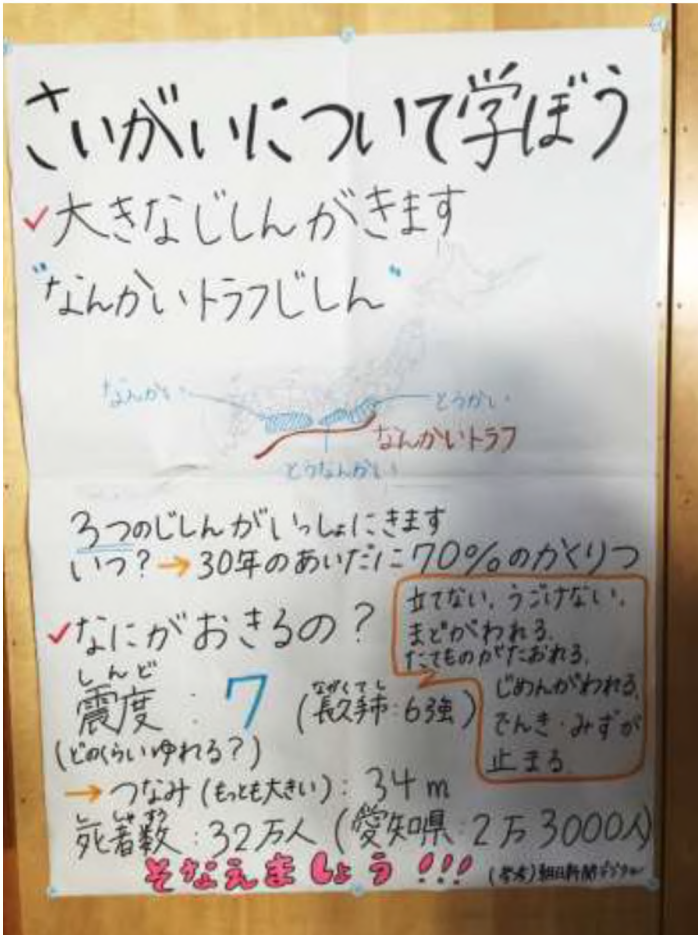 さいがいについて学ぼう
✓大きなじしんがきます
"なんかいトラフじしん"
なんかい
とうかい
なんかいトラフ
とうなんかい
3つのじしんがいっしょにきます
いつ?→30年のあいだに70%のかくりつ
✓なにがおきるの?
立てない、うごけない、
まどがわれる、
たてものがたおれる、
じめんがわれる、
でんき・みずが
止まる
しんど
震度:7
ながくてし
(長久手市:6強)
(どのくらいゆれる?)
→つなみ(もっとも大きい):34m
ししゃすう
死者数:32万人(愛知県:2万3000人)
そなえましょう!!!
(参考)朝日新聞デジタル